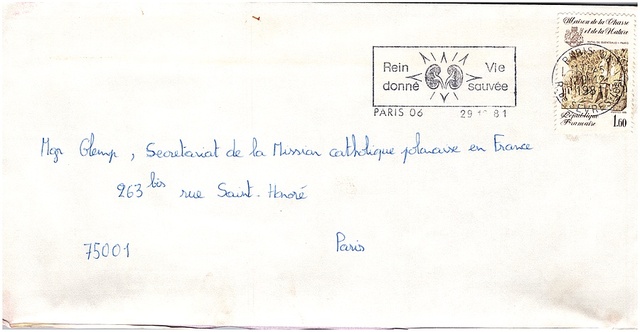 Maison de la Chasse
et de la Nature
Rein Vie
donné sauvée
PARIS 06 81
République
Française 1.60
Mgr Glemp, Secretariat de la Mission catholique polonaise en France
263 bis rue Saint-Honoré
75001 Paris